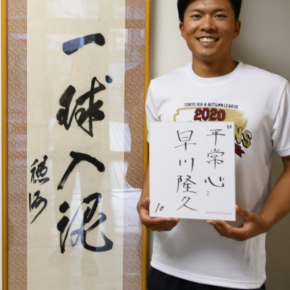 一球入魂
穂洲
TOKYO BIG 6 AUTUMN LEAGUE
2020
"平常心"
早川隆久
10